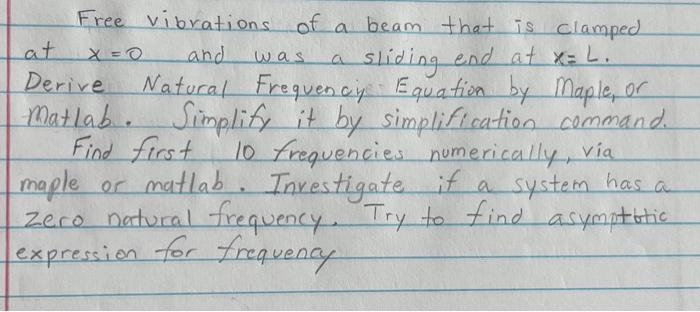 Free vibrations of a beam that is clamped
at x=0 and was a sliding end at x=L.
Derive Natural Frequency Equation by Maple, or
Matlab. Simplify it by simplification command.
Find first 10 frequencies numerically, via
maple or matlab. Investigate if a system has a
zero natural frequency. Try to find asymptotic
expression for frequency